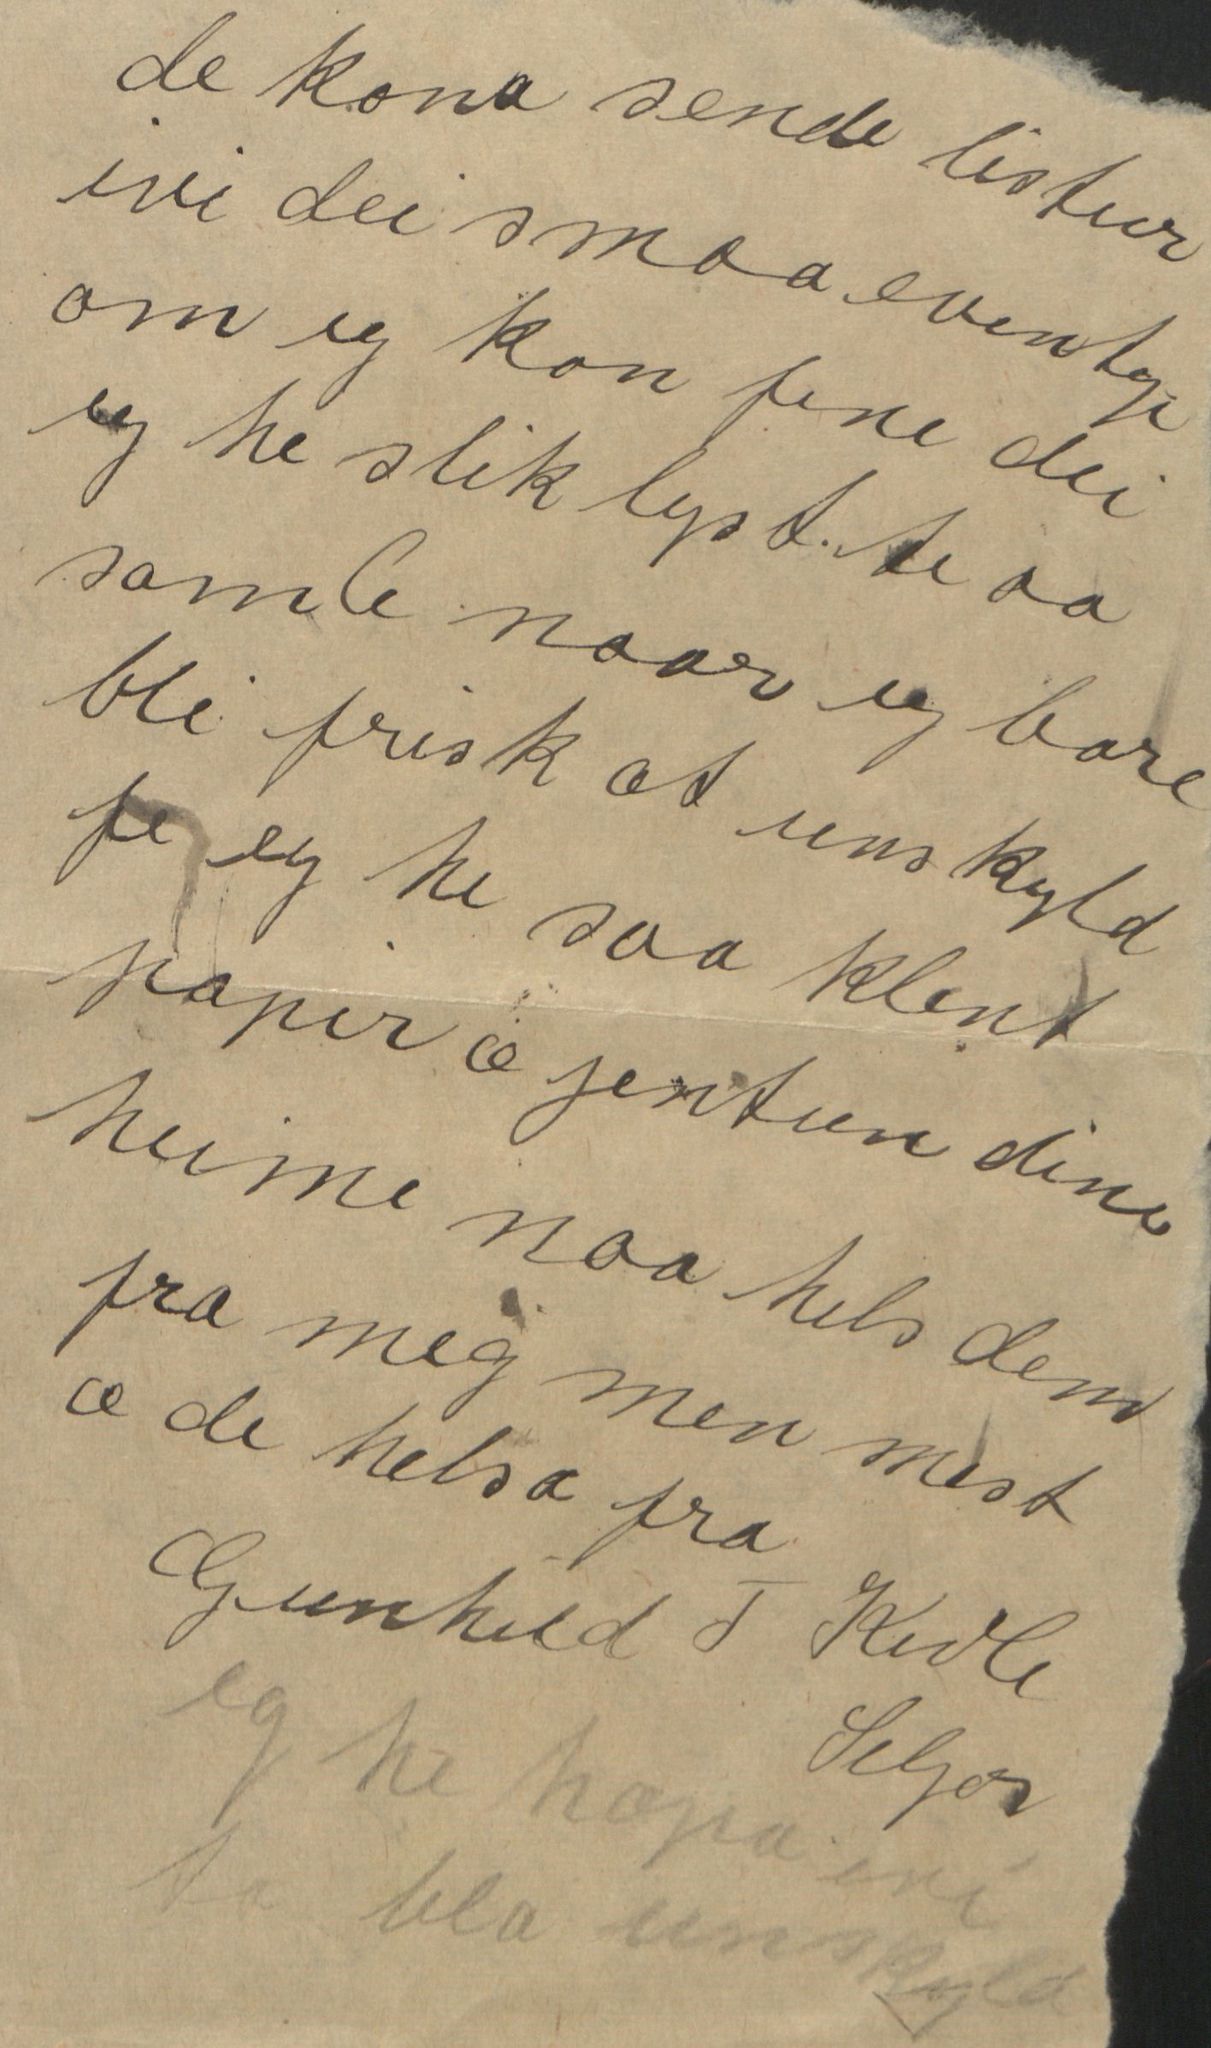 de kona sende listur
ivi dei smaa eventyr
om eg kan fine dei
eg he slik lyst te aa
samle naar eg bare
bli frisk at unskyld
fe eg he saa klent
papir æ jentun dine
heime naa hels dem
fra meg men mest
æ de helsa fra
Gunhild T Kivle
Seljor
eg he hopa ivi
to bla unskyld